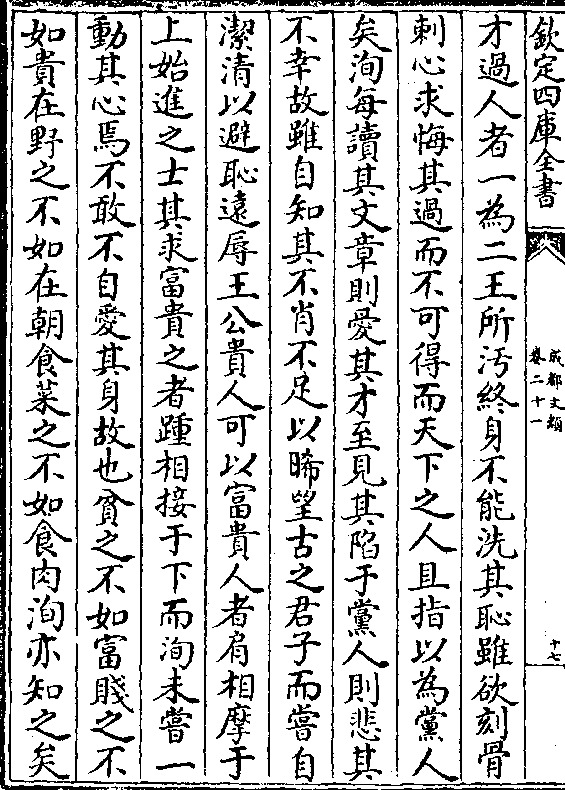 欽定四庫全書
成都文類
卷二十一
十七
才過人者一為二王所汚終身不能洗其恥雖欲刻骨
刺心求悔其過而不可得而天下之人且指以為黨人
矣洵每讀其文章則愛其才至見其陷于黨人則悲其
不幸故雖自知其不肖不足以晞望古之君子而嘗自
潔清以避恥遠辱王公貴人可以富貴人者肩相摩于
上始進之士其求富貴之者踵相接于下而洵未嘗一
動其心焉不敢不自愛其身故也貧之不如富賤之不
如貴在野之不如在朝食菜之不如食肉洵亦知之矣